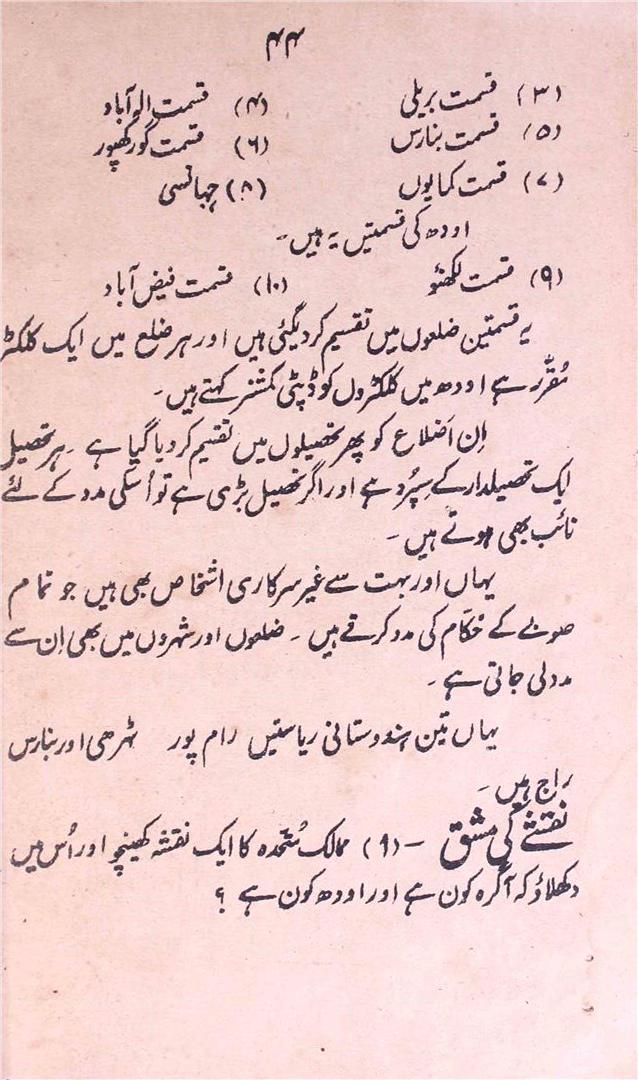 ۴۴
(۳) قسمت بریلی (۴) قسمت الہ آباد
(۵) قسمت بنارس (۶) قسمت گورکھپور
(۷) قسمت کمایوں (۸) جہانسی
اودھ کی قسمتیں یہ ہیں۔
(۹) قسمت لکھنؤ (۱۰) قسمت فیض آباد
یہ قسمتین ضلعوں میں تقسیم کردیگئی ہیں اور ہر ضلع میں ایک کلکٹر
مُقرّر ہے اودھ میں کلکٹروں کو ڈپٹی کمشنر کہتے ہیں۔
اِن اَضلاع کو پھر تحصیلوں میں تقسیم کردیا گیا ہے۔ ہر تحصیل
ایک تحصیلدار کے سِپُرد ہے اور اگر تحصیل بڑی ہے تو اُسکی مدد کے لئے
نائب بھی ہوتے ہیں۔
یہاں اور بہت سے غیر سرکاری اشخاص بھی ہیں جو تمام
صوبے کے حُکّام کی مدد کرتے ہیں۔ ضلعوں اور شہروں میں بھی اِن سے
مدد لی جاتی ہے۔
یہاں تین ہندوستانی ریاستیں رام پور ٹہرھی اور بنارس
راج ہیں۔
نقشے کی مشق – (۹) ممالک مُتّحدہ کا ایک نقشہ کھینچو اور اُس میں
دکھلاؤ کہ آگرہ کون ہے اور اودھ کون ہے ؟